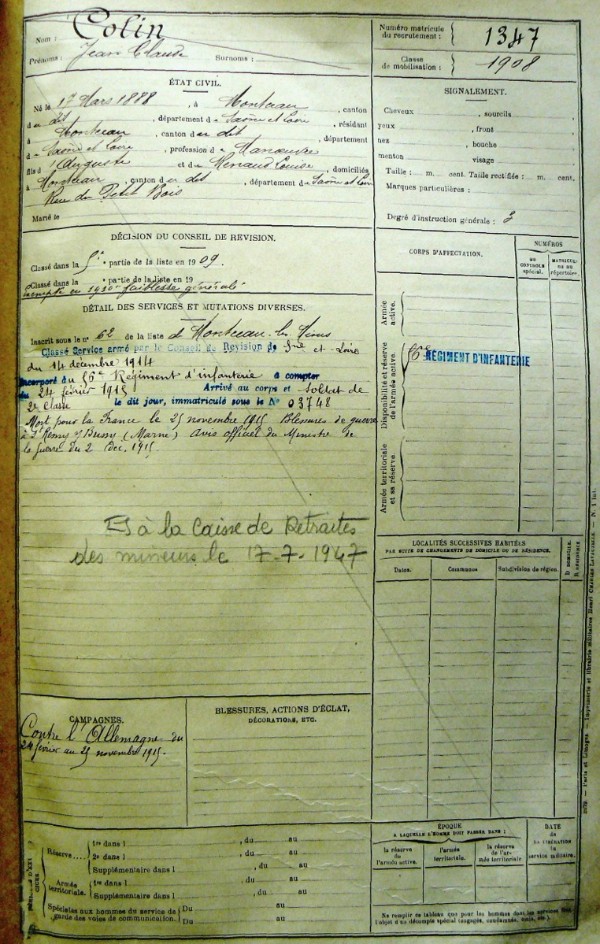 Nom : Colin
Prénoms : Jean Claude Surnoms :
Numéro matricule du recrutement : 1347
Classe de mobilisation : 1908
ÉTAT CIVIL.
Né le 1er Mars 1888, à Montceau, canton
du dit, département de Saône et Loire, résidant
à Montceau, canton du dit, département
de Saône et Loire, profession de Manœuvre
fils d'Auguste et de Renaud Louise, domiciliés
à Montceau, canton du dit, département de Saône et Loire
Rue du Petit Bois
Marié le
DÉCISION DU CONSEIL DE REVISION.
Classé dans la 5e partie de la liste en 1909.
Classé dans la partie de la liste en 19
exempté en 1910 faiblesse générale
DÉTAIL DES SERVICES ET MUTATIONS DIVERSES.
Inscrit sous le n° 62 de la liste de Montceau-les-Mines
Classé Service armé par le Conseil de Revision de Sne et Loire
du 14 décembre 1914
Incorporé au Régiment d'infanterie à compter
du 24 février 1915 Arrivé au corps et soldat de
2e classe le dit jour, immatriculé sous le N° 03748
Mort pour la France le 25 novembre 1915 Blessures de guerre
à St Rémy s/ Bussy (Marne) avis officiel du Ministre de
la Guerre du 2 Déc. 1915
à la Caisse de Retraites
des mineurs le 17-7-1947
CAMPAGNES.
Contre l'Allemagne du
24 février au 25 novembre 1915.
BLESSURES, ACTIONS D'ÉCLAT,
DÉCORATIONS, ETC.
Réserve.... 1re dans l , du au
2e dans l , du au
Supplémentaire dans l , du au
Armée territoriale. 1re dans l , du au
Supplémentaire dans l , du au
Spéciales aux hommes du service de
garde des voies de communication. Du au
Du au
SIGNALEMENT.
Cheveux , sourcils
yeux , front
nez , bouche
menton visage
Taille : m. cent. Taille rectifiée : m. cent.
Marques particulières :
Degré d'instruction générale : 3
CORPS D'AFFECTATION.
NUMÉROS
AU CONTROLE spécial.
MATRICULE OU DU répertoire.
Armée active.
Disponibilité et réserve de l'armée active.
RÉGIMENT D'INFANTERIE
Armée territoriale et sa réserve.
LOCALITÉS SUCCESSIVES HABITÉES
PAR SUITE DE CHANGEMENTS DE DOMICILE OU DE RÉSIDENCE.
Dates.
Communes
Subdivision de région.
D. DOMICILE.
R. RÉSIDENCE
ÉPOQUE
A LAQUELLE L'HOMME DOIT PASSER DANS :
la réserve de l'armée active.
l'armée territoriale.
la réserve de l'armée territoriale
DATE
de la libération du service militaire.
Ne remplir ce tableau que pour les hommes dont les services font
l'objet d'un décompte spécial (engagés, condamnés, omis, etc.)